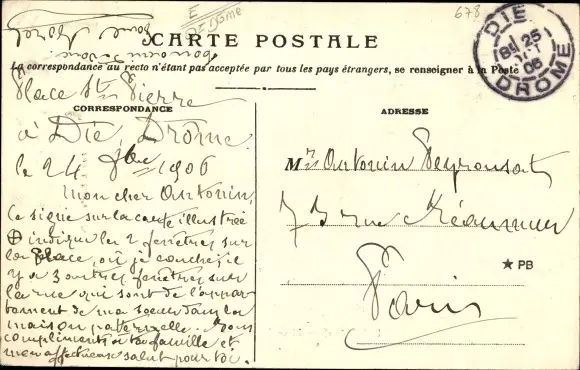 E
DRÔME
678
CARTE POSTALE
La correspondance au recto n'étant pas acceptée par tous les pays étrangers, se renseigner à la Poste
DIE
25
OCT
06
DROME
Place St Pierre
CORRESPONDANCE
à Die, Drome.
le 24 8bre 1906
Mon cher Antonin,
Ce signe sur la carte illustrée
⊕ indique les 2 fenêtres sur
la Place, où je couche, il
y a 3 autres fenêtres sur
la rue qui sont de l'appar
tement de ma soeur dans la
maison paternelle. Mons
compliments à ta famille et
mon affectueux salut pour toi.
ADRESSE
Mr Antonin Peyronsat
73 rue Réaumur
★ PB
Paris